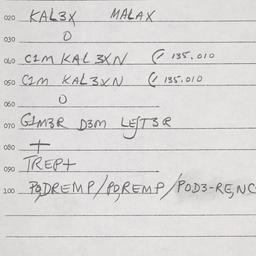 020 KAL3X MALAX
030 O
040 C1M KAL3XN ( 135.010
050 C1M KAL3XN ( 135.010
060 O
070 G1M3R D3M LEJT3R
080 +
090 TREP+
100 PODREMP/POREMP/POD3-RE,NC